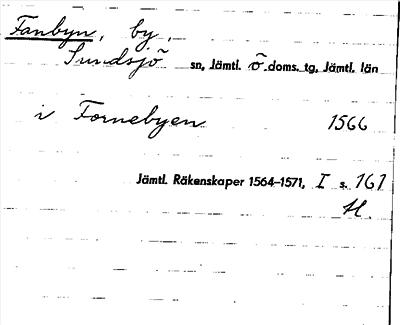 Fanbyn, by,
Sundsjö sn, Jämtl. ö. doms. tg, Jämtl. län
i Fornebyen 1566
Jämtl. Räkenskaper 1564–1571, I s. 161
H.